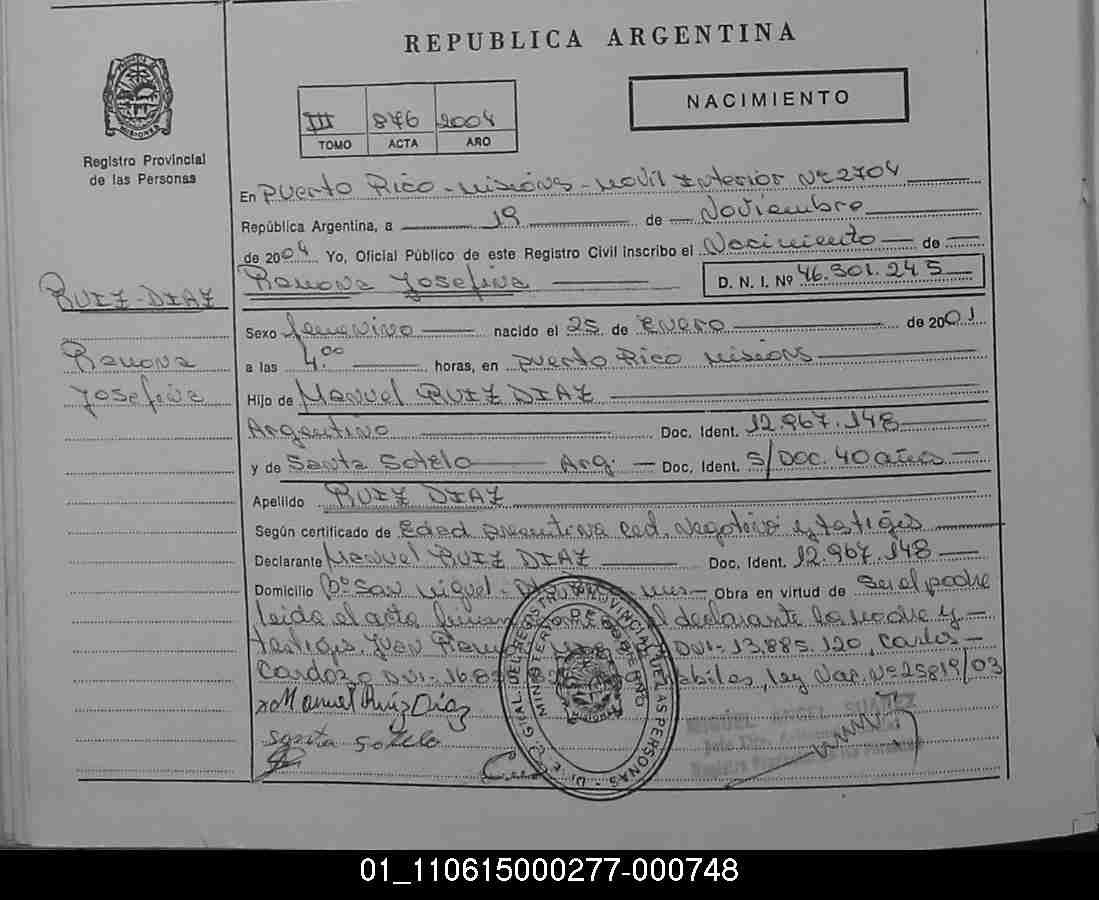 REPUBLICA ARGENTINA
NACIMIENTO
III 876 2004
TOMO ACTA AÑO
Registro Provincial
de las Personas
En Puerto Rico - Misiones - Movil Interior Nº 2704
República Argentina, a 19 de Noviembre
de 2004 Yo, Oficial Público de este Registro Civil inscribo el Nacimiento de
Ramona Josefina D. N. I. Nº 46.301.245
RUIZ-DIAZ
Ramona
Josefina
Sexo femenino nacido el 25 de Enero de 2001
a las 4.00 horas, en Puerto Rico Misiones
Hijo de Manuel RUIZ DIAZ
Argentino Doc. Ident. 12.967.148
y de Santa Sotelo Arg. Doc. Ident. S/Doc. 40 años
Apellido RUIZ DIAZ
Según certificado de Edad presuntiva ced. Negativa y testigos
Declarante Manuel RUIZ DIAZ Doc. Ident. 12.967.148
Domicilio Bº San Miguel - Mnes - Obra en virtud de Ser el padre
leida el acta firman declarante la madre y
testigos Juan DNI- 13.885.120, Carlos
Cardozo DNI- 16.8 habiles, ley Nac. Nº 25819/03
Manuel Ruíz Díaz
Santa Sotelo
MIGUEL ANGEL SUAREZ
MINISTERIO DE GOBIERNO
DEL REGISTRO PROVINCIAL DE LAS PERSONAS
MISIONES
01_110615000277-000748